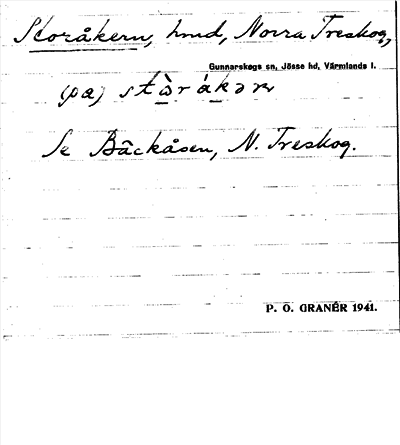 Storåkern, hmd, Norra Treskog,
Gunnarskogs sn, Jösse hd, Värmlands l.
(pa) stɷ̀råkəɳ
Se Bäckåsen, N. Treskog.
P. O. GRANÉR 1941.